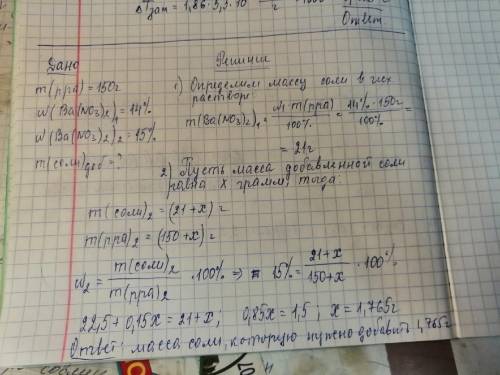 Tзам = 1,86·5,5·10
Ответ
Дано
Решение
m(рра) = 150г
w(Ba(NO3)2)1 = 14%
w(Ba(NO3)2)2 = 15%
m(соли)доб = ?
1) Определим массу соли в исх
растворе:
m(Ba(NO3)2)1 = w·m(рра)/100% = 14%·150г/100% =
= 21г
2) Пусть масса добавленной соли
равна x грамм, тогда:
m(соли)2 = (21+x)г
m(рра)2 = (150+x)г
w2 = m(соли)2/m(рра)2 · 100% => 15% = 21+x/150+x · 100%
22,5 + 0,15x = 21+x; 0,85x = 1,5; x = 1,765г
Ответ: масса соли, которую нужно добавить 1,765г